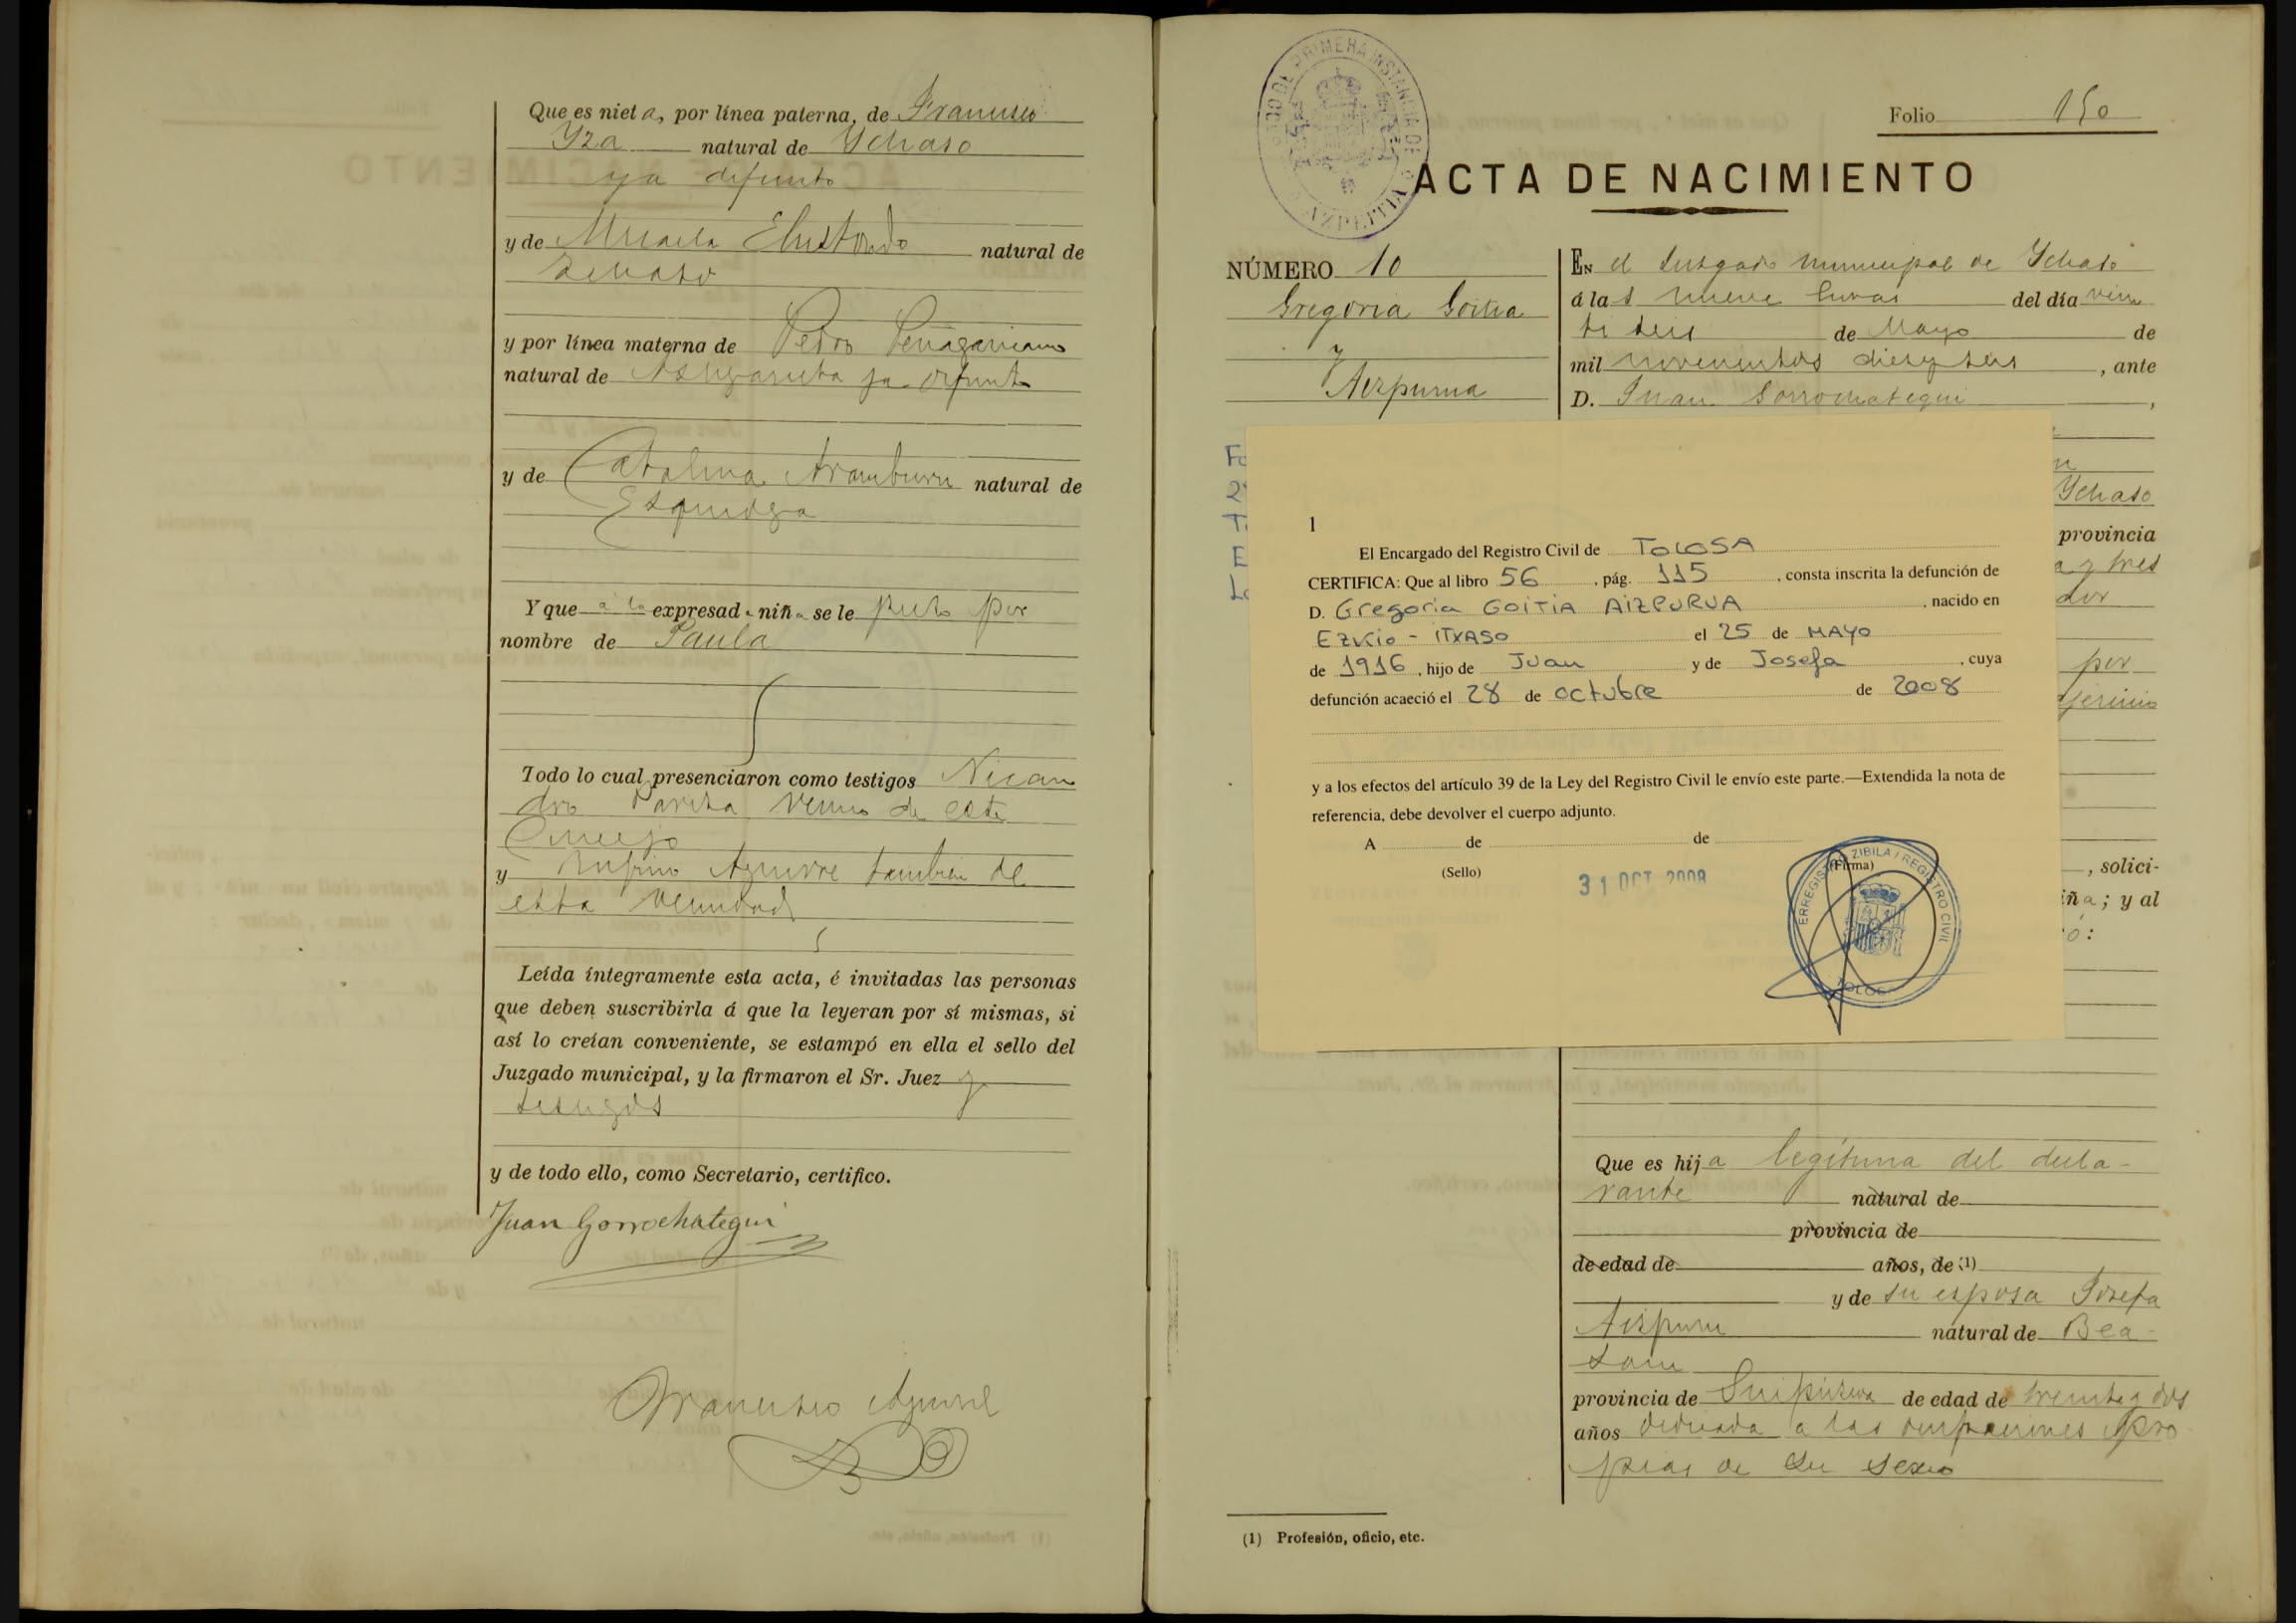 Que es nieta, por línea paterna, de Francisco
Yza natural de Ychaso
ya difunto
y de Micaela Elustondo natural de
Ychaso
y por línea materna de Pedro Peñagaricano
natural de Astigarreta ya difunto
y de Catalina Aramburu natural de
Esquioga
Y que á la expresada niña se le puso por
nombre de Paula
Todo lo cual presenciaron como testigos Nican
dro vecino de este
Concejo
y Rufino Aguirre tambien de
esta vecindad
Leída íntegramente esta acta, é invitadas las personas
que deben suscribirla á que la leyeran por sí mismas, si
así lo creían conveniente, se estampó en ella el sello del
Juzgado municipal, y la firmaron el Sr. Juez y
testigos
y de todo ello, como Secretario, certifico.
Juan Gorrochategui
Francisco Aguirre
JUZGADO DE PRIMERA INSTANCIA DE AZPEITIA
Folio 150
ACTA DE NACIMIENTO
NÚMERO 10
Gregoria Goitia
y
Aizpurua
EN el Juzgado municipal de Ychaso
á las nueve horas del día vein
ti seis de Mayo de
mil novecientos diez y seis, ante
D. Juan Gorrochategui,
Ychaso
provincia
a y tres
dor
por
, solici-
iña; y al
ó:
1
El Encargado del Registro Civil de TOLOSA
CERTIFICA: Que al libro 56, pág. 115, consta inscrita la defunción de
D. Gregoria GOITIA AIZPURUA, nacido en
EZKio - ITXASO el 25 de MAYO
de 1916, hijo de Juan y de Josefa, cuya
defunción acaeció el 28 de octubre de 2008
y a los efectos del artículo 39 de la Ley del Registro Civil le envío este parte.—Extendida la nota de
referencia, debe devolver el cuerpo adjunto.
A de de
(Sello) (Firma)
31 OCT 2008
ERREGISTRO ZIBILA / REGISTRO CIVIL
TOLOSA
Que es hija legítima del decla-
rante natural de
provincia de
de edad de años, de (1)
y de su esposa Josefa
Aizpuru natural de Bea-
sain
provincia de Guipúzcoa de edad de treinta y dos
años dedicada a las ocupaciones pro
pias de su sexo
(1) Profesión, oficio, etc.